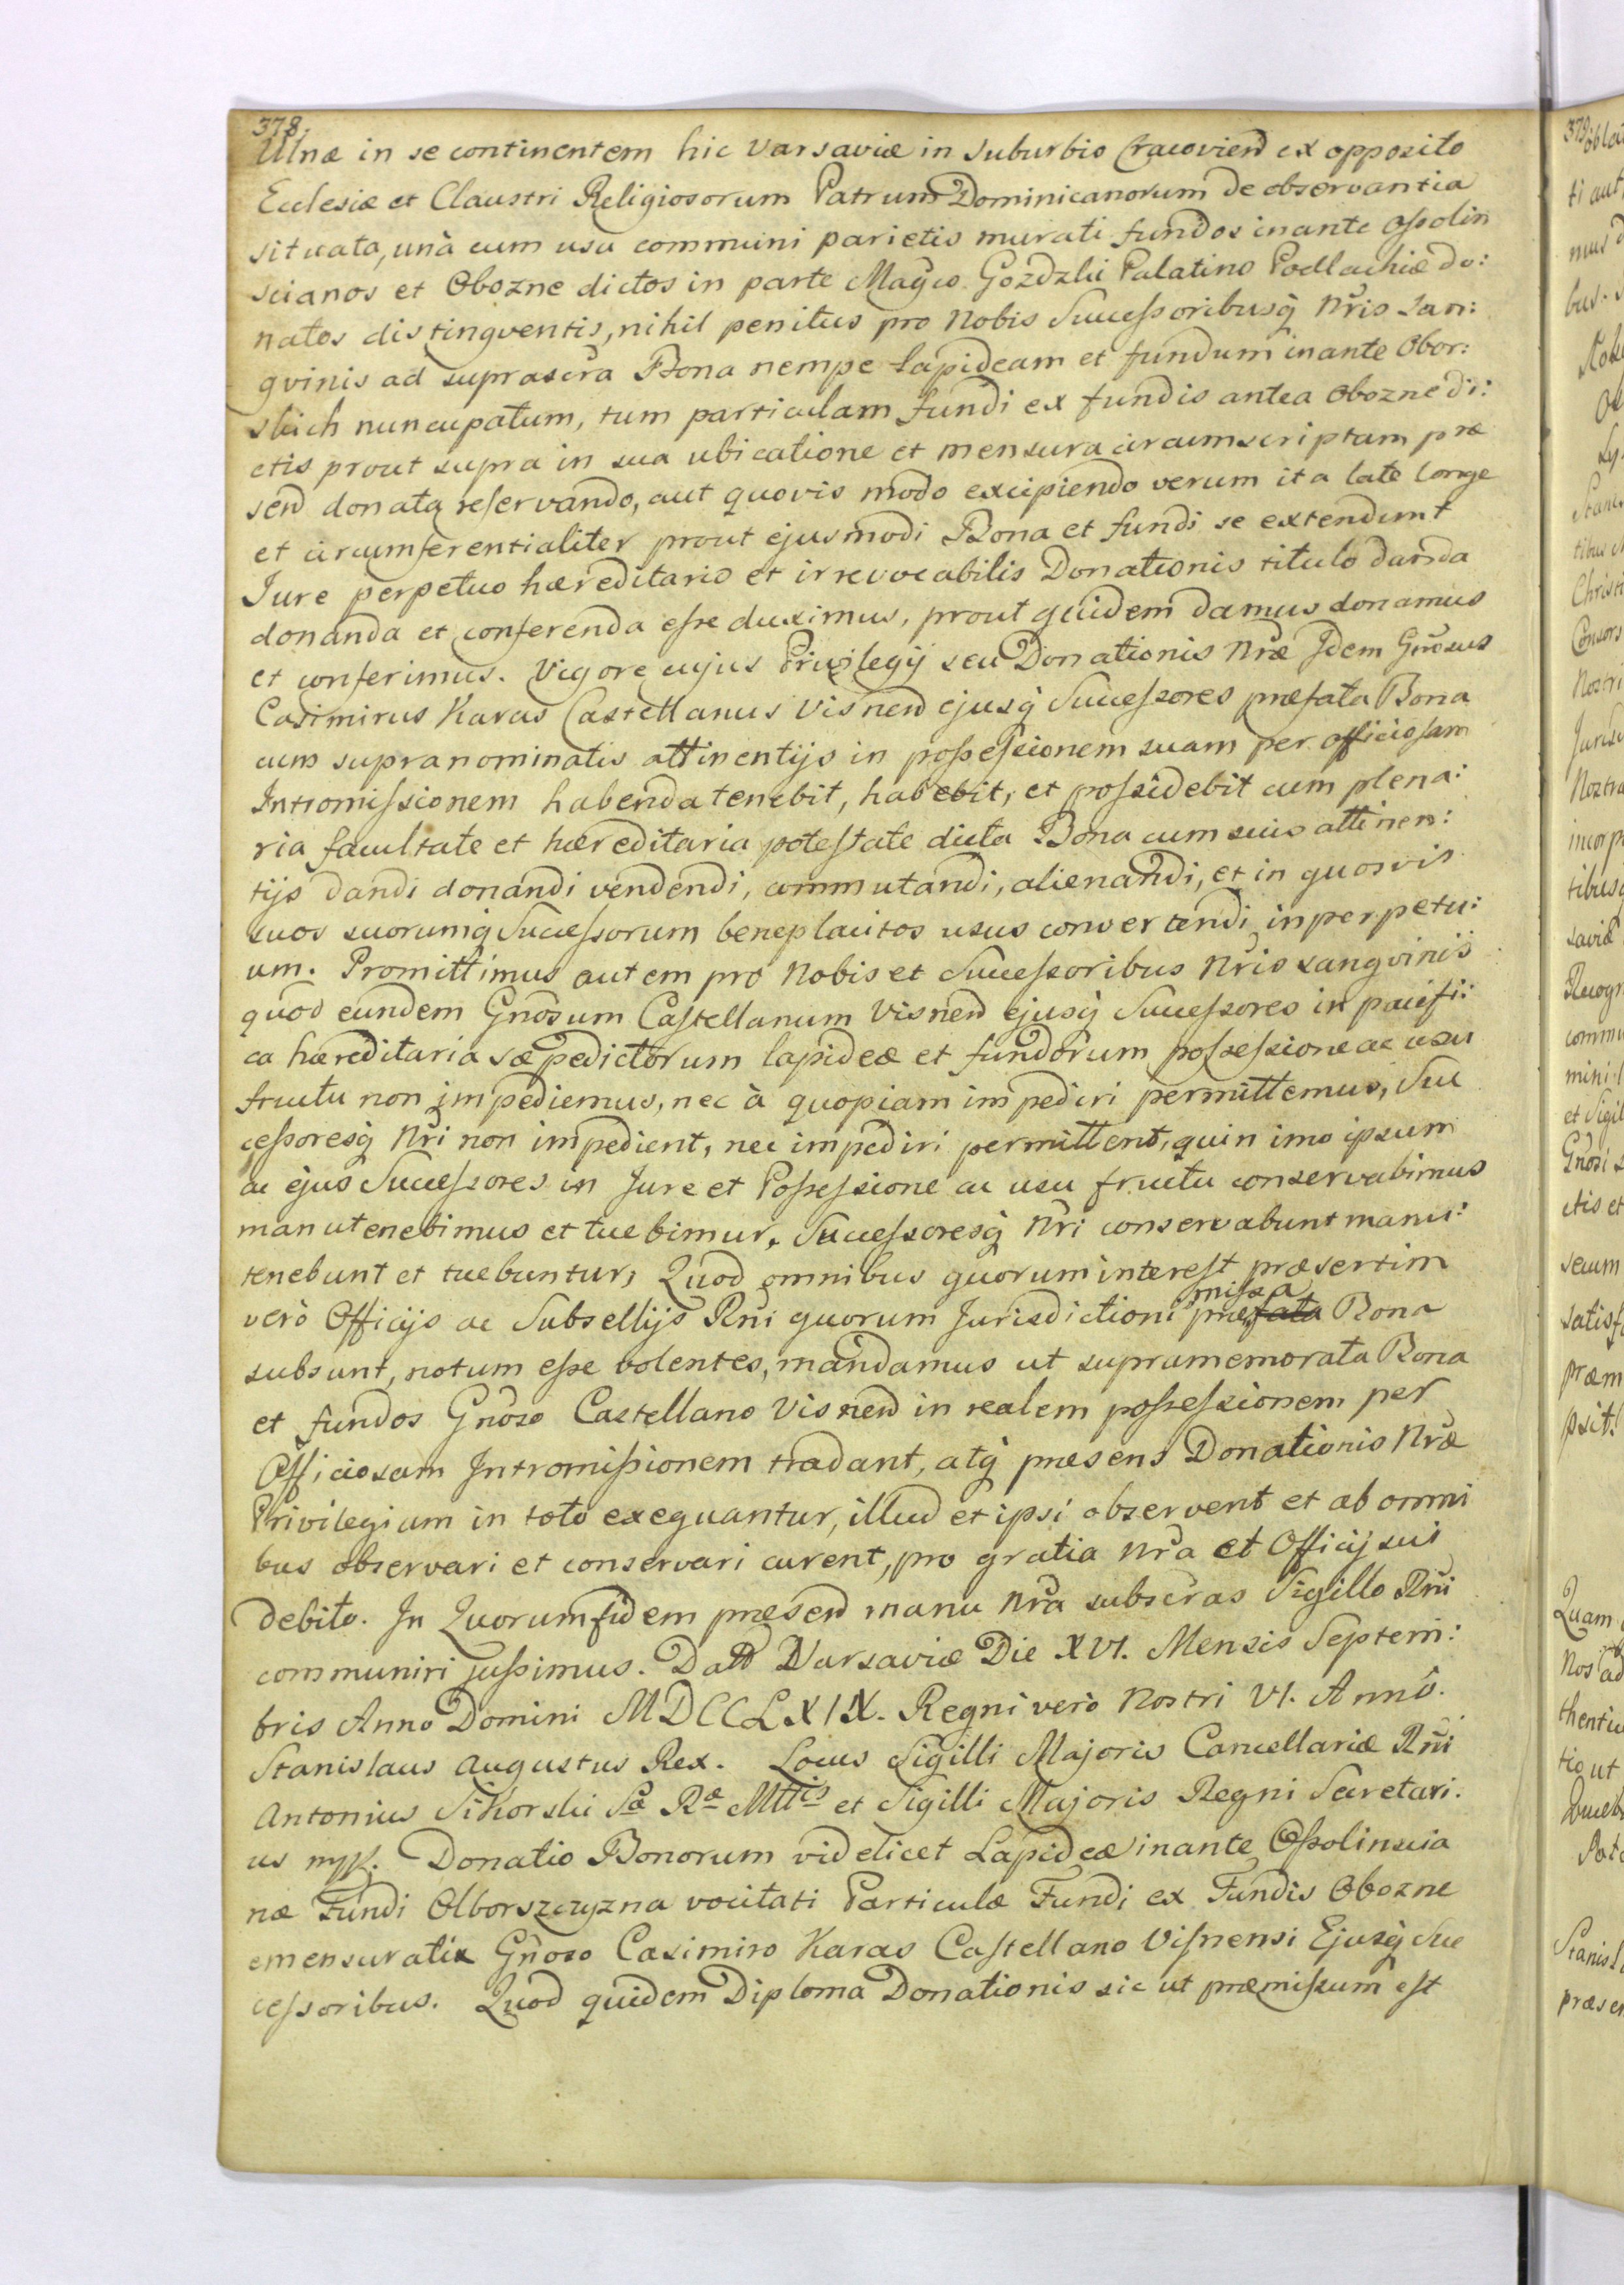 378.
Ulnæ in se continentem hic Varsaviæ in Suburbio Cracovien̄ ex opposito
Ecclesiæ et Claustri Religiosorum Patrum Dominicanorum de observantia
situata, unà cum usu communi parietis murati fundos inante Oſsolin
scianos et Obozne dictos in parte Magco Gozdzki Palatino Podlachiæ do:
natos distingventis, nihil penitus pro Nobis Succeſsoribusq̃ Nr̃is San:
gvinis ad suprascr̃a Bona nempe Lapideam et fundum inante Obor:
skich nuncupatum, tum particulam fundi ex fundis antea Obozne di:
ctis prout supra in sua ubicatione et mensura circumscriptam præ
sen̄ donata reſervando, aut quovis modo excipiendo verum ita late longe
et circumferentialiter prout ejusmodi Bona et fundi se extendunt
Jure perpetuo hæreditario et irrevocabilis Donationis titulo danda
donanda et conferenda eſse duximus, prout quidem damus donamus
et conferimus. Vigore cujus Privilegij seu Donationis Nr̃æ Jdem Gñosus
Casimirus Karas Castellanus Visnen̄ ejusq̃ Succeſsores præfata Bona
cum supranominatis attinentijs in poſseſsionem suam per officioſam
Intromiſsionem habenda tenebit, habebit, et poſsidebit cum plena:
ria facultate et hæreditaria poteſtate dicta Bona cum suis attinen:
tijs dandi donandi vendendi, commutandi, alienandi, et in quosvis
suos suorumq̃ Succeſsorum beneplacitos usus convertendi in perpetu:
um. Promittimus autem pro Nobis et Succeſsoribus Nr̃is sangvinis
quod eundem Gñosum Caſtellanum Visnen̄ ejusq̃ Succeſsores in pacifi:
ca hæreditaria sæpedictorum lapideæ et fundorum poſseſsione ac usu
fructu non impediemus, nec à quopiam impediri permittemus, Suc
ceſsoresq̃ Nr̃i non impedient, nec impediri permittent, quin imo ipsum
ac ejus Succeſsores in Jure et Poſseſsione ac usu fructu conservabimus
manutenebimus et tuebimur, Succeſsoresq̃ Nr̃i conservabunt manu:
tenebunt et tuebuntur, Quod omnibus quorum intereſt præsertim
verò Officijs ac Subsellijs Rñi quorum Jurisdictioni præfata miſsa Bona
subsunt, notum eſse volentes, mandamus ut supramemorata Bona
et fundos Gñoso Castellano Visnen̄ in realem poſseſsionem per
Officiosam Intromiſsionem tradant, atq̃ præsens Donationis Nr̃æ
Privilegium in toto exequantur, illud et ipsi observent et ab omni
bus observari et conservari curent, pro gratia Nr̃a et Officij sui
debito. In Quorum fidem præsen̄ manu Nr̃a subscr̃as Sigillo Rñi
communiri juſsimus. Datt Varsaviæ Die XVI. Mensis Septem:
bris Anno Domini MDCCLXIX. Regni verò Nostri VI. Annô.
Stanislaus Augustus Rex. Locus Sigilli Majoris Cancellariæ Rñi
Antonius Sikorski Sæ Ræ Mttis et Sigilli Majoris Regni Secretari.
us mp. Donatio Bonorum videlicet Lapideæ inante Oſsolinscia
næ Fundi Olborszczyzna vocitati Particulæ Fundi ex Fundis Obozne
emensuratix Gñoso Casimiro Karas Caſtellano Viſnensi Ejusq̃ Suc
ceſsoribus. Quod quidem Diploma Donationis sic ut præmiſsum eſt